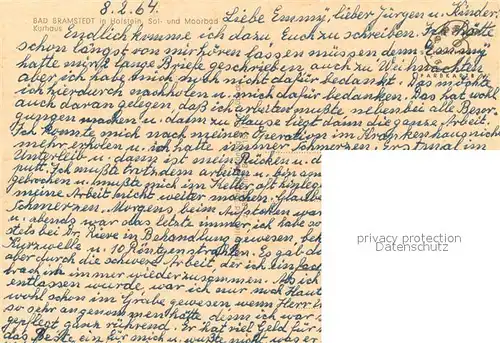 8. 2. 64.
BAD BRAMSTEDT in Holstein, Sol- und Moorbad
Kurhaus
Liebe Emmy, lieber Jürgen u. Kinder
Endlich komme ich dazu Euch zu schreiben. Ich hätte
schon längst von mir hören lassen müssen denn Emmy
hatte mir lange Briefe geschrieben auch zu Weihnachten
aber ich habe mich noch nicht dafür bedankt. Das möchte
ich hierdurch nachholen u. mich dafür bedanken. Das hat wohl
auch daran gelegen, daß ich arbeiten mußte, nebenbei alle Besor-
gungen machen u. dann zu Hause liegt dann die ganze Arbeit.
Ich konnte mich nach meiner Operation im Krankenhaus nicht
mehr erholen u. ich hatte immer Schmerzen. Erst mal im
Unterleib u. dann ist mein Rücken u. d
putt. Ich mußte trotzdem arbeiten u. bin am
gebrochen u. mußte mich im Keller oft hinlegen
meine Arbeit nicht weiter machen. Glaube
Schmerzen. Morgens beim Aufstehen war
u. abends war das letzte immer, ich habe so
stets bei Dr. in Behandlung gewesen, bek
Kurzwelle u. 10 Röntgenstrahlen. Es gab da
aber durch die schwere Arbeit, der ich einfach
brach ich immer wieder zusammen. Als ich
entlassen wurde, war ich nur noch Haut
wohl schon im Grabe gewesen wenn Herr
so sehr angenommen hätte denn ich war s
gepflegt ganz rührend. Er hat viel Geld für m
das Beste ein für mich u. wußte nicht was er
privacy protection
Datenschutz